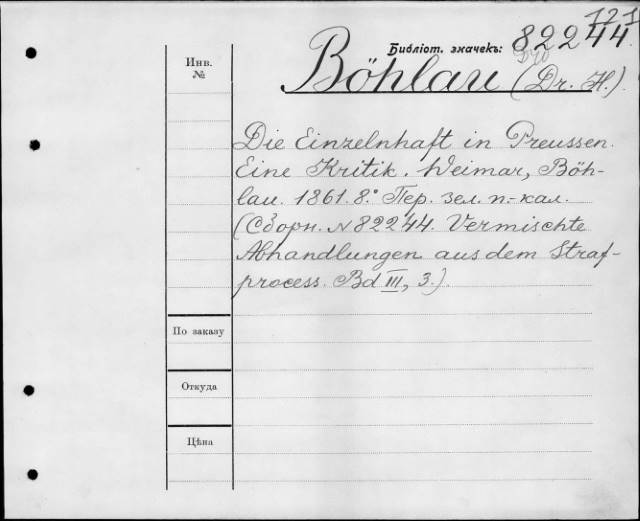 121
Библіот. значекъ: 82244.
Böhlau (Dr. H.).
Инв.
№
Die Einzelnhaft in Preussen.
Eine Kritik. Weimar, Böh-
lau. 1861. 8.° Пер. зел. п.-кал.
(Сборн. № 82244. Vermischte
Abhandlungen aus dem Straf-
process. Bd III, 3.).
По заказу
Откуда
Цѣна